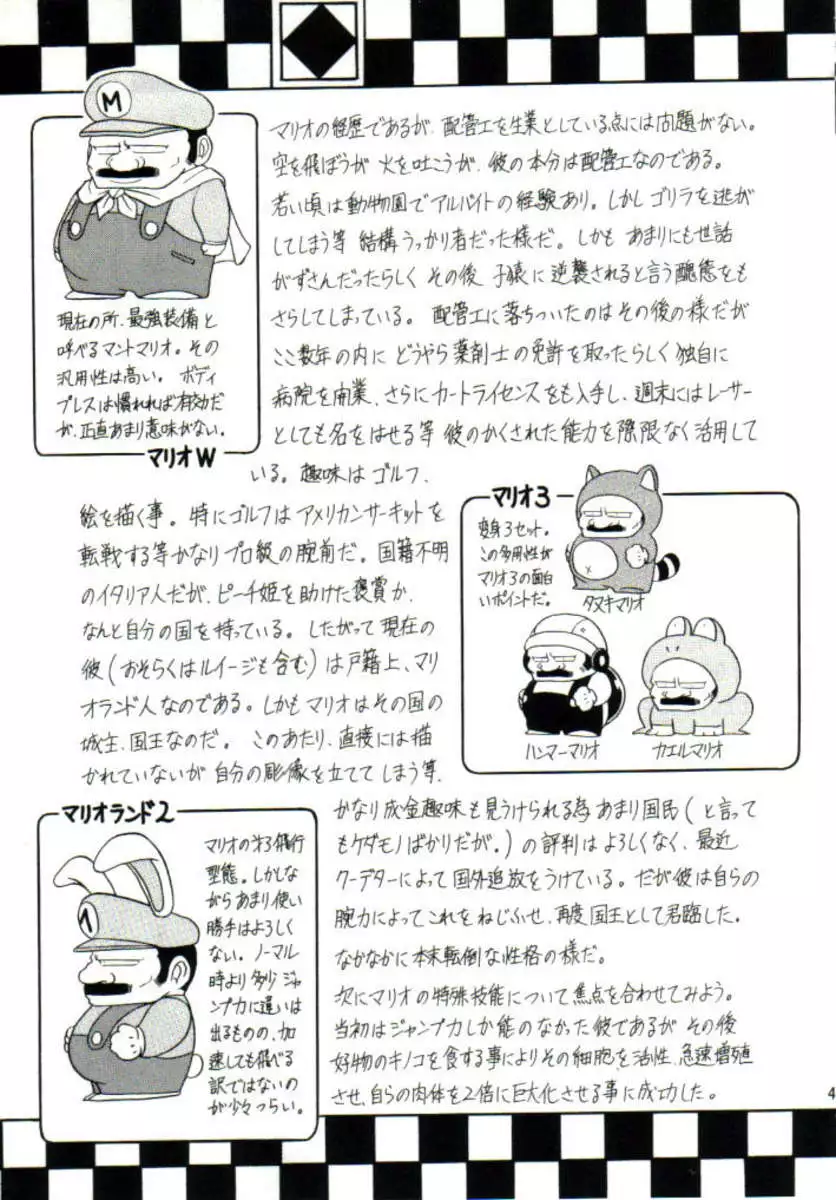 M
現在の所、最強装備と
呼べるマントマリオ。その
汎用性は高い。 ボディ
プレスは慣れれば有効だ
が、正直あまり意味がない。
マリオW
マリオの経歴であるが、配管工を生業としている点には問題がない。
空を飛ぼうが 火を吐こうが、彼の本分は配管工なのである。
若い頃は動物園でアルバイトの経験あり。しかしゴリラを逃が
してしまう等 結構うっかり者だった様だ。しかも あまりにも世話
がずさんだったらしく その後 子猿に逆襲されると言う醜態をも
さらしてしまっている。 配管工に落ちついたのはその後の様だが
ここ数年の内に どうやら薬剤士の免許を取ったらしく 独自に
病院を開業、さらにカートライセンスをも入手し、週末にはレーサー
としても名をはせる等 彼のかくされた能力を際限なく活用して
いる。趣味はゴルフ、
絵を描く事。特にゴルフは アメリカンサーキットを
転戦する等かなり プロ級の腕前だ。国籍不明
のイタリア人だが、ピーチ姫を助けた褒賞か、
なんと自分の国を持っている。したがって現在の
彼(おそらくはルイージも含む)は戸籍上、マリ
オランド人なのである。しかもマリオはその国の
城主、国王なのだ。 このあたり、直接には描
かれていないが 自分の彫像を立ててしまう等、
マリオ3
変身3セット。
この多用性が
マリオ3の面白
いポイントだ。
タヌキマリオ
ハンマーマリオ
カエルマリオ
マリオランド2
マリオの第3飛行
型態。しかしな
がらあまり使い
勝手はよろしく
ない。ノーマル
時より多少ジャ
ンプ力に違いは
出るものの、加
速しても飛べる
訳ではないの
が少々つらい。
かなり成金趣味も見うけられる為 あまり国民(と言って
もケダモノばかりだが。)の評判はよろしくなく、最近
クーデターによって国外追放をうけている。だが彼は自らの
腕力によってこれをねじふせ、再度国王として君臨した。
なかなかに本末転倒な性格の様だ。
次にマリオの特殊技能について焦点を合わせてみよう。
当初はジャンプ力しか能のなかった彼であるが その後
好物のキノコを食する事によりその細胞を活性、急速増殖
させ、自らの肉体を2倍に巨大化させる事に成功した。
4